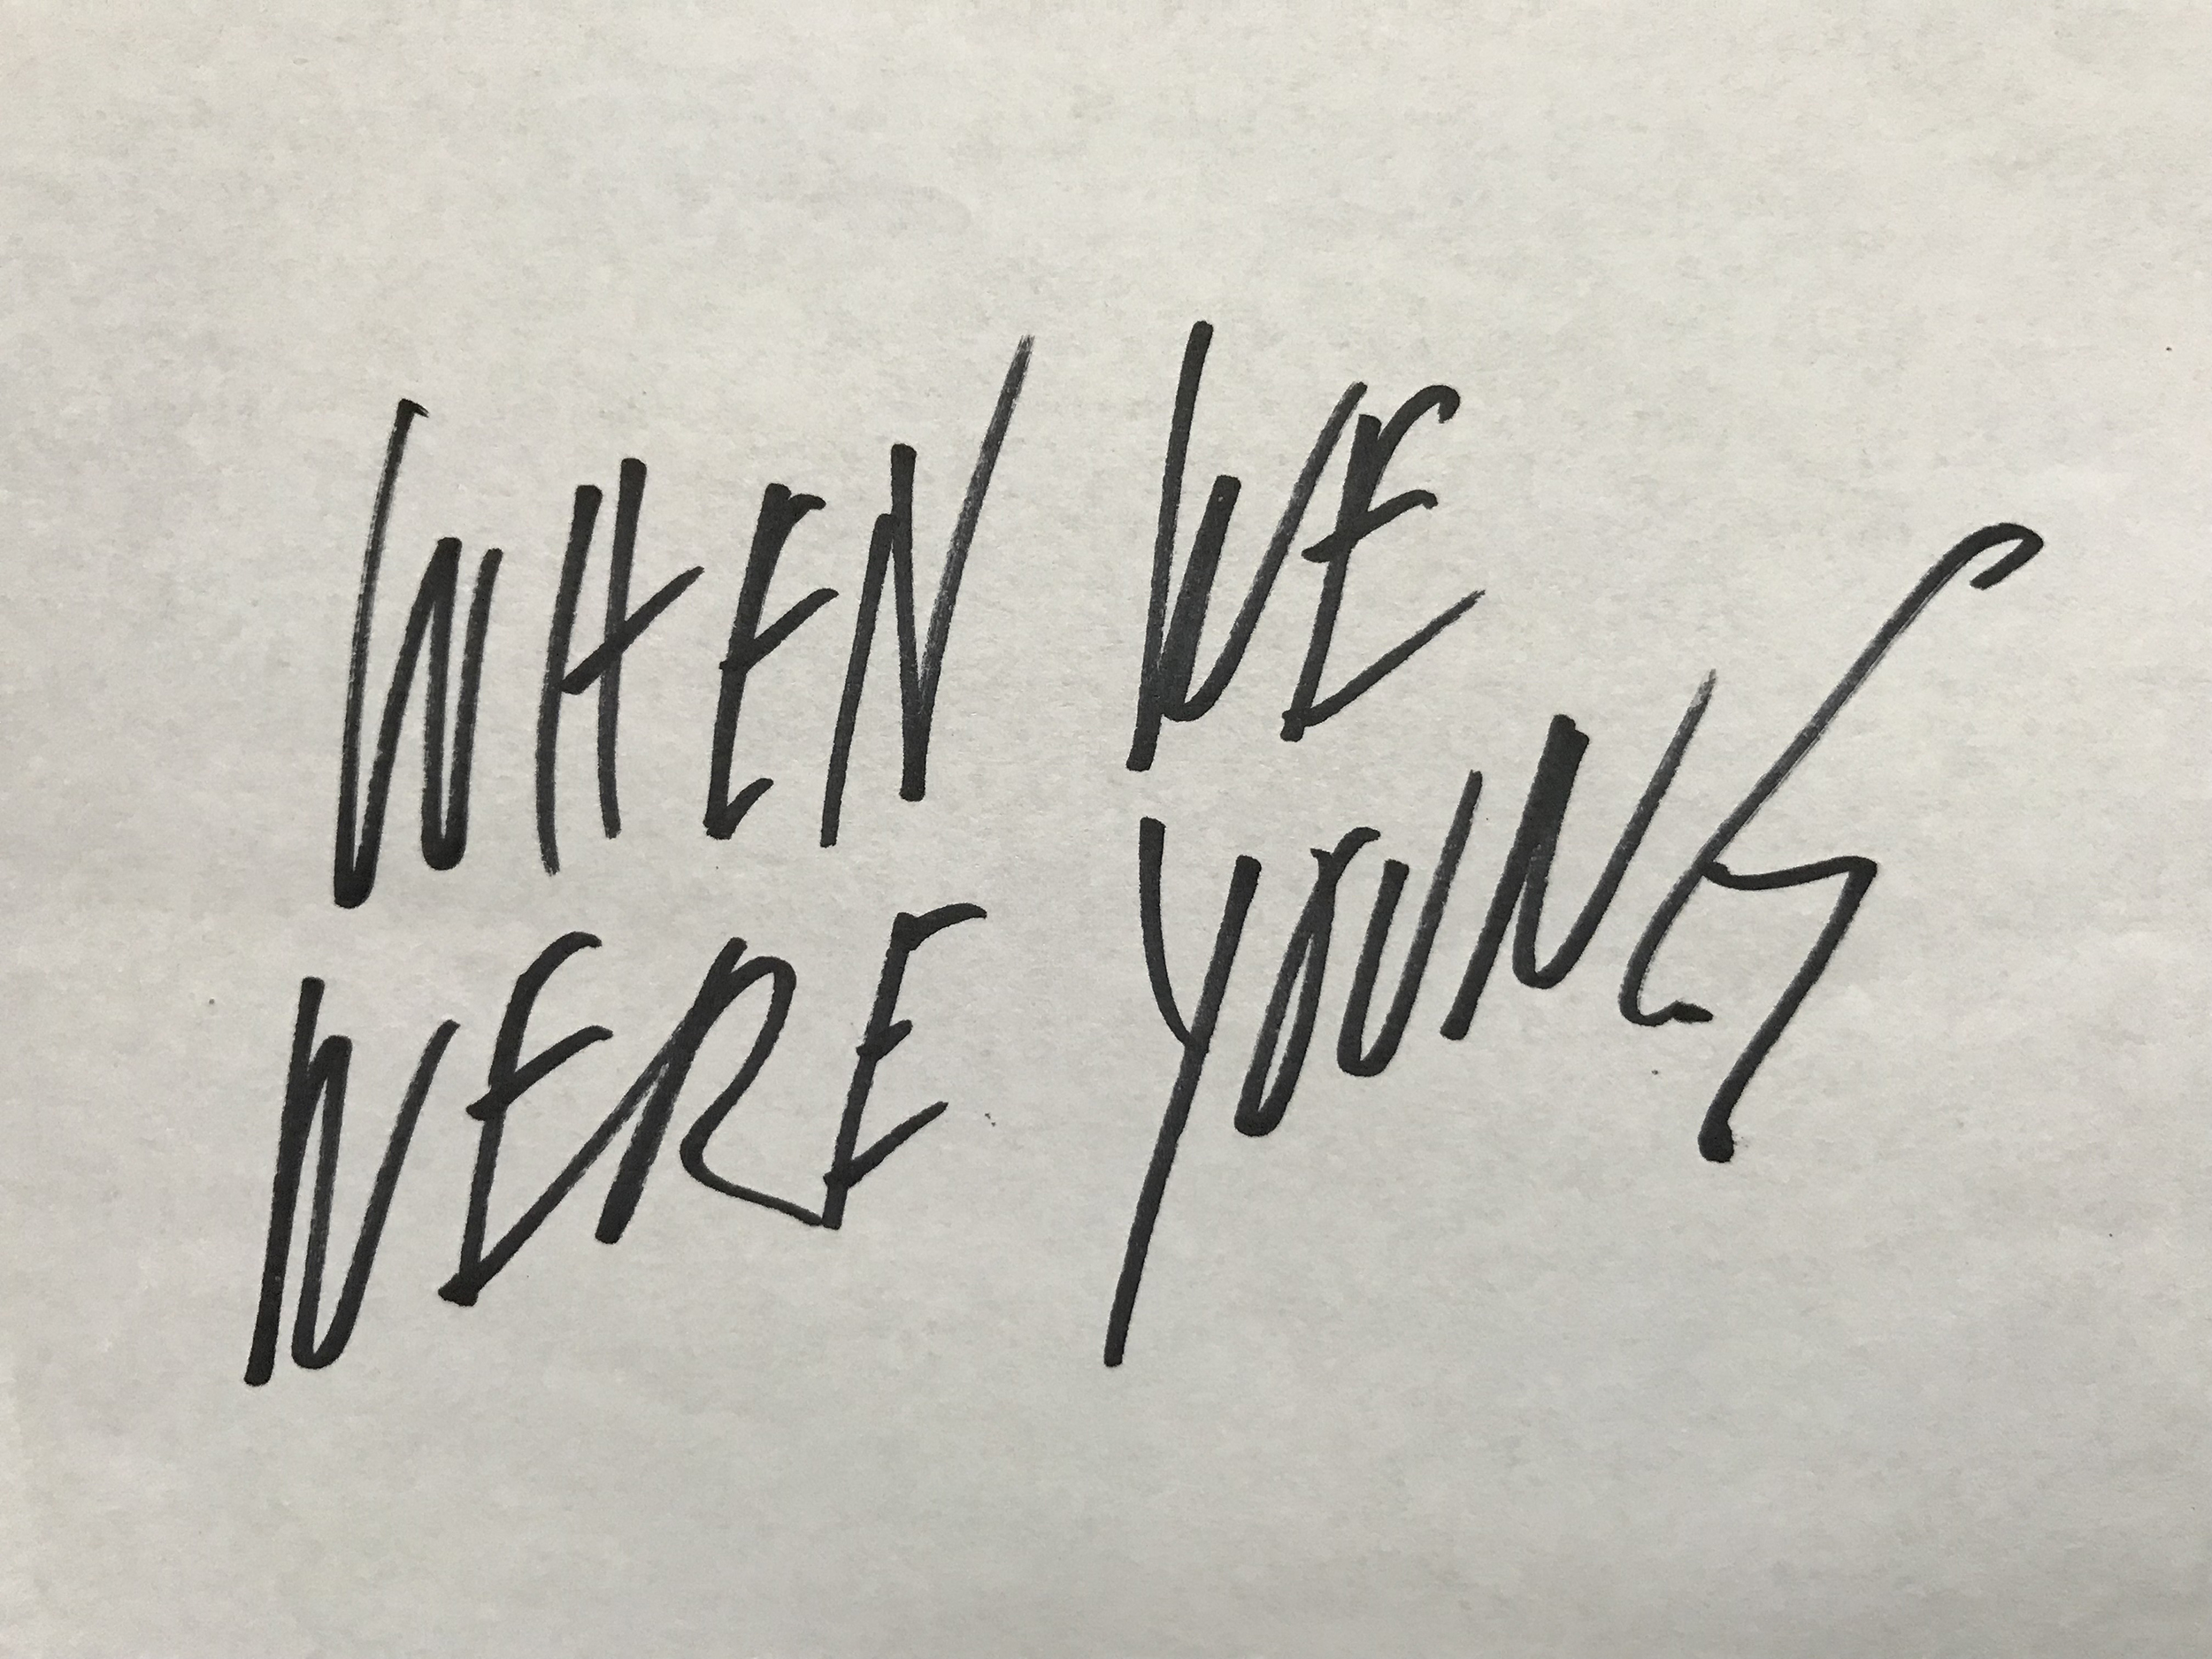 WHEN WE
WERE YOUNG